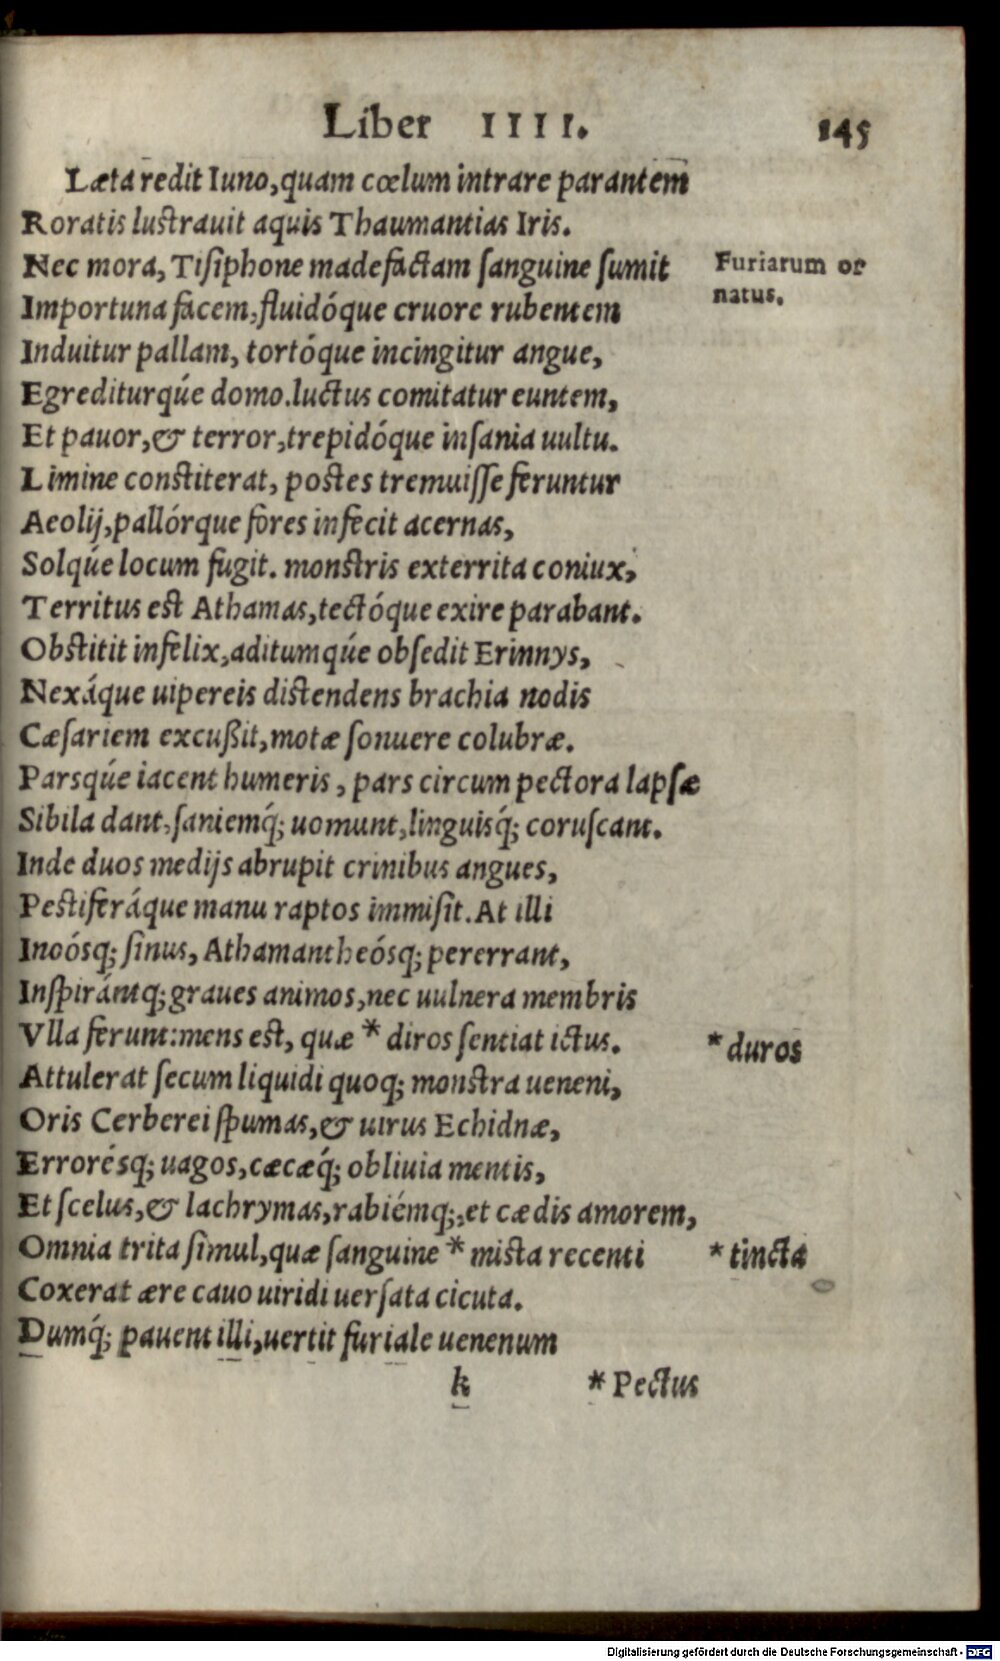 Liber IIII. 145
Læta redit Iuno, quam cœlum intrare parantem
Roratis lustrauit aquis Thaumantias Iris.
Nec mora, Tisiphone madefactam ſanguine ſumit
Furiarum or
natus.
Importuna facem, fluidóque cruore rubentem
Induitur pallam, tortóque incingitur angue,
Egrediturqúe domo. luctus comitatur euntem,
Et pauor, & terror, trepidóque inſania uultu.
Limine constiterat, postes tremuiſſe feruntur
Aeolij, pallórque fores infecit acernas,
Solqúe locum fugit. monstris exterrita coniux,
Territus est Athamas, tectóque exire parabant.
Obstitit infelix, aditumqúe obſedit Erinnys,
Nexáque uipereis distendens brachia nodis
Cæſariem excußit, motæ ſonuere colubræ.
Parsqúe iacent humeris, pars circum pectora lapſæ
Sibila dant, ſaniemq́; uomunt, linguisq́; coruſcant.
Inde duos medijs abrupit crinibus angues,
Pestiferáque manu raptos immiſit. At illi
Inoósq; ſinus, Athamantheósq; pererrant,
Inſpirántq; graues animos, nec uulnera membris
Vlla ferunt: mens est, quæ * diros ſentiat ictus.
* duros
Attulerat ſecum liquidi quoq; monstra ueneni,
Oris Cerberei ſpumas, & uirus Echidnæ,
Errorésq; uagos, cæcæq́; obliuia mentis,
Et ſcelus, & lachrymas, rabiémq;, et cædis amorem,
Omnia trita ſimul, quæ ſanguine * mista recenti
* tincta
Coxerat ære cauo uiridi uerſata cicuta.
Dumq́; pauent illi, uertit furiale uenenum
k * Pectus
Digitalisierung gefördert durch die Deutsche Forschungsgemeinschaft - DFG